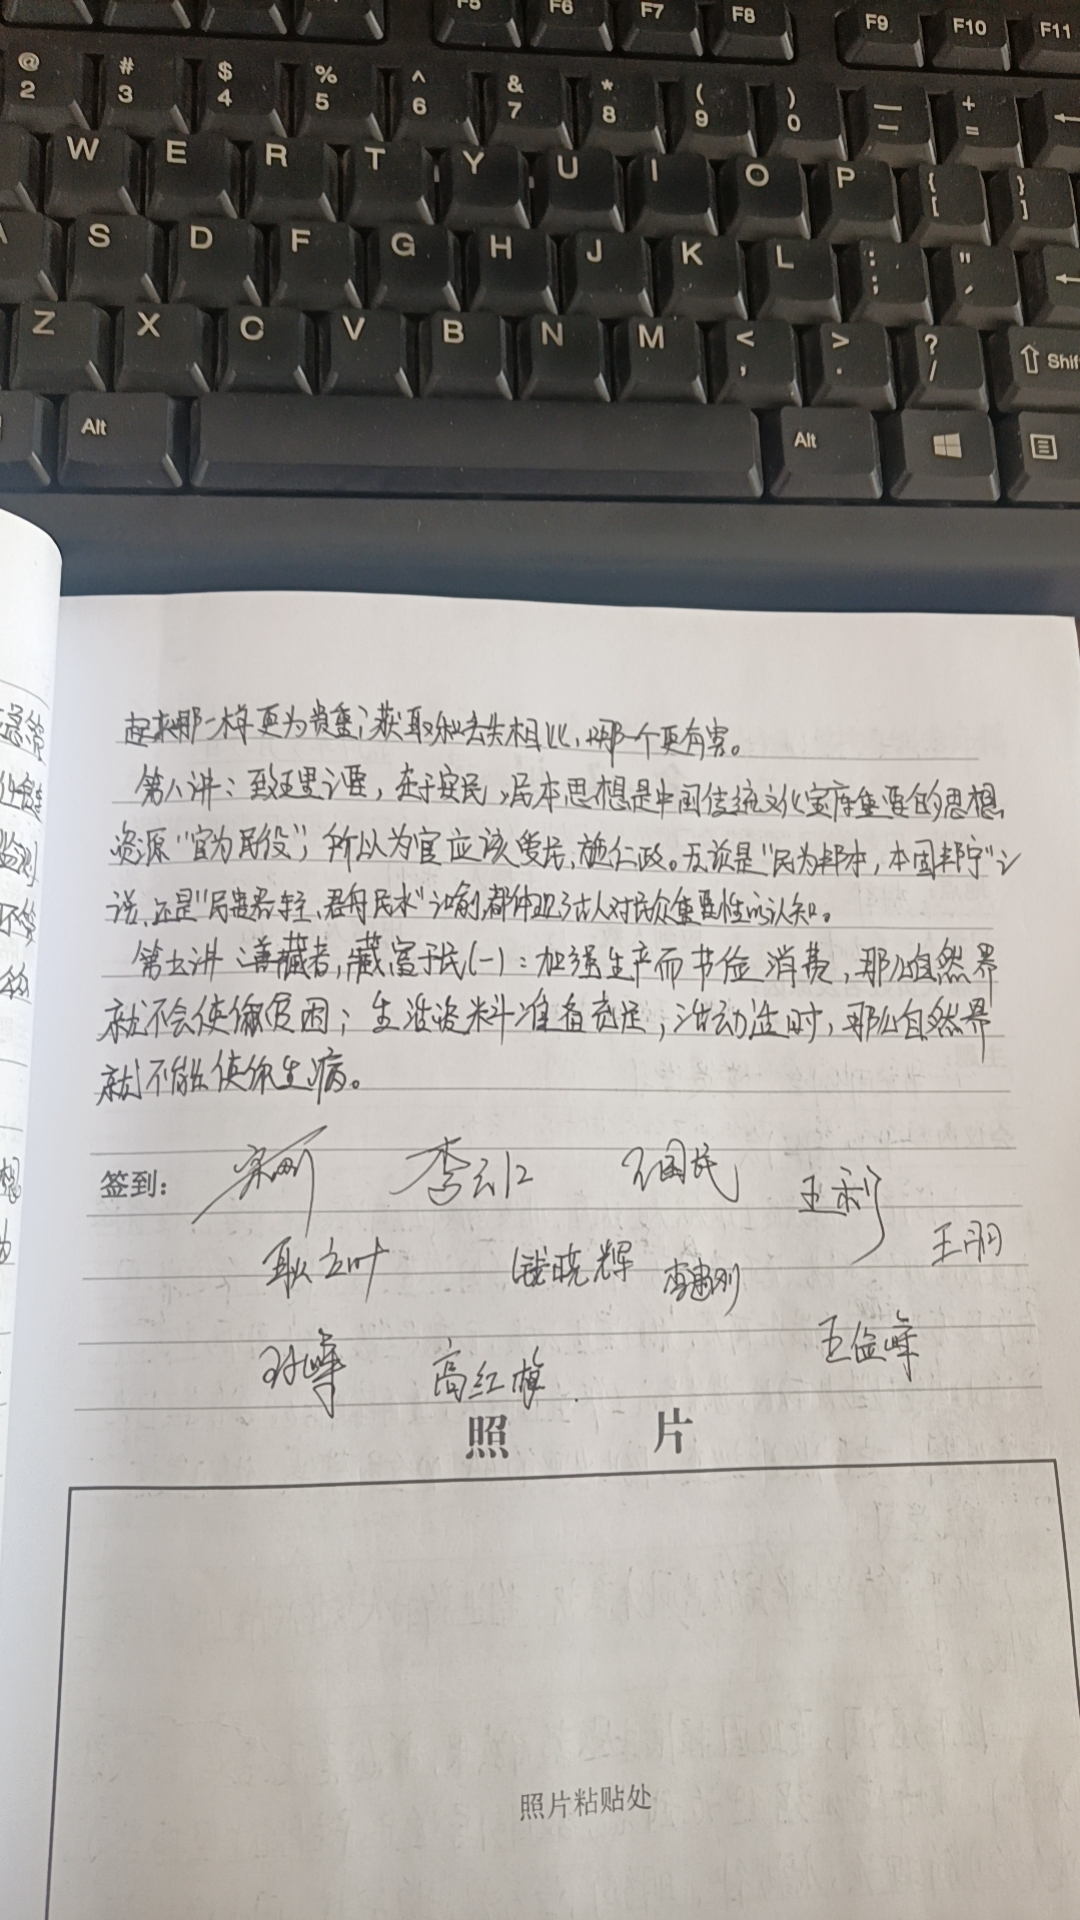 F5 F6 F7 F8 F9 F10 F11
@ # $ % ^ & * ( ) — +
2 3 4 5 6 7 8 9 0 – =
W E R T Y U I O P { }
[ ]
A S D F G H J K L : "
; ,
Z X C V B N M < > ?
, . / Shif
Alt Alt
起来哪一样更为贵重;获取和丢失相比,哪一个更有害。
第八讲:致理之要,在于安民,民本思想是中国传统文化宝库重要的思想
资源"官为民役",所以为官应该爱民、施仁政。无论是"民为邦本,本固邦宁"之
说,还是"民贵君轻、君舟民水"之喻,都体现了古人对民众重要性的认知。
第九讲:善藏者,藏富于民(一):加强生产而节俭消费,那么自然界
就不会使你贫困;生活资料准备充足,活动适时,那么自然界
就不能使你生病。
签到: 李云仁 王国民 王利
钱晓辉 李建刚 王朋
高红旗 王俭峰
照 片
照片粘贴处